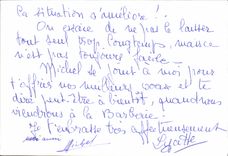 La situation s'améliore !
On essaie de ne pas le laisser
tout seul trop longtemps, mais ce
n'est pas toujours facile.
Michel se joint à moi pour
t'offrir nos meilleurs voeux et te
dire peut-être à bientôt, quand nous
viendrons à la Barberie.
Je t'embrasse très affectueusement
Michel